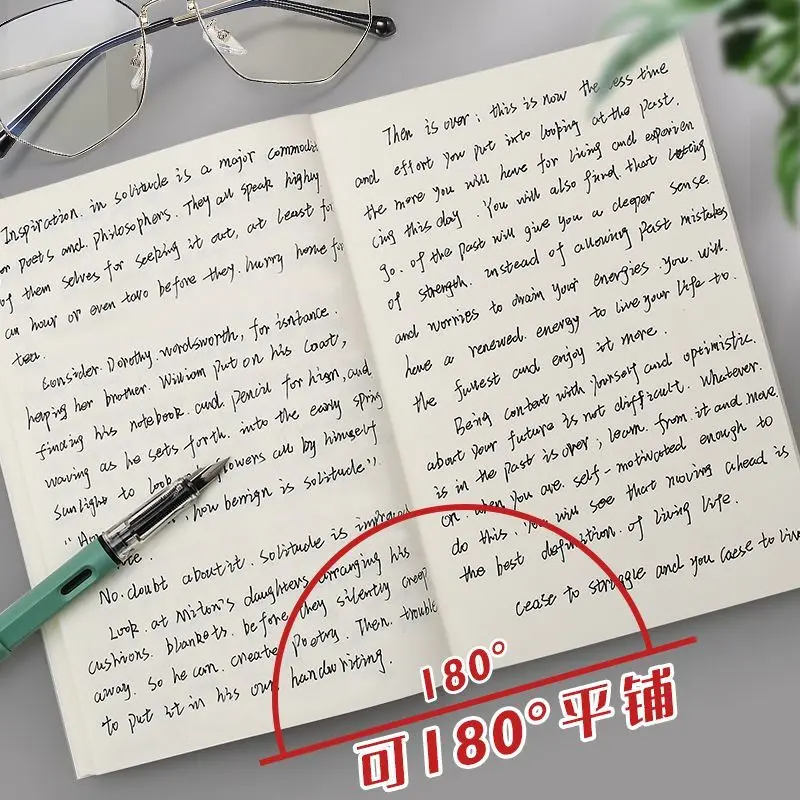 Inspiration. in solitude is a major commodit
or poets and. philosophers. They all speak highly
of them selves for seeping it out, at least for
an hour or even tavo before they. hurry home for
tea.
Consider. Dorothy. wordsworth, for isntance.
heping her brother. William put on his coat,
finding his notebook. and. pencil for hign, and
waving as he sets forth. into the early spring
sunlight to look flowers all by himself
how benign is solitude".
No. doubt about it. Solitude is improved
Look. at Milton's daughters arranging his
cushions. blankets. before they silently creep
away. So he can. create poetry. Then. trouble
to put it in his own handwriting.
Then is over; this is now the less time
and effort you put into looping at the past.
the more you will have for living and experien
cing this day. You will also find that letting
go. of the past will give you a deeper sense.
of strength. instead of allowing past mistakes
and worries to drain your energies. you. will.
have a renewed. energy to live your life to.
the fullest and enjoy it more.
Being content with yourself and optimistic.
about your future is not difficult. Whatever.
is in the past is over; learn. from it and move.
on. when you are. self-motivated enough to
do this. You will see that moving ahead is
the best definition. of living life.
cease to struggle and you caese to live
180°
可180°平铺